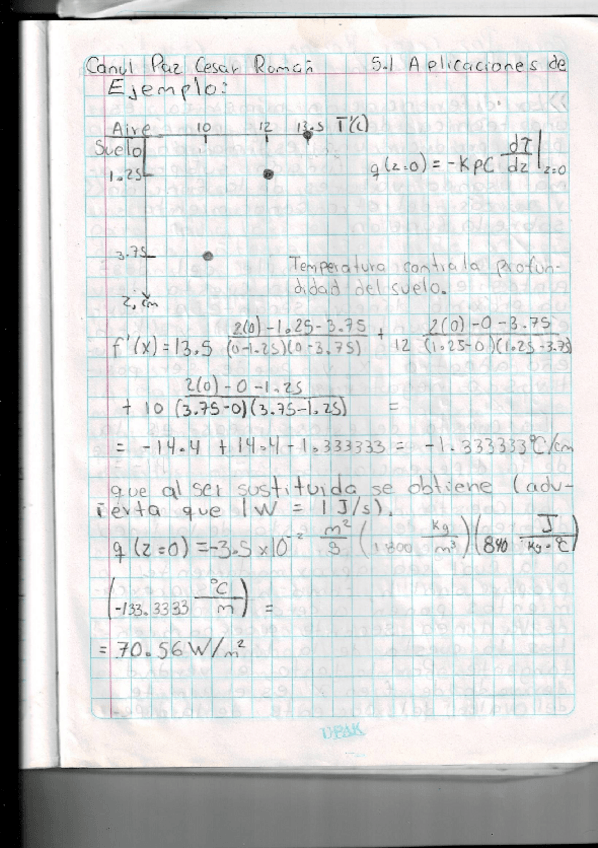 Canul Paz Cesar Román 5.1 Aplicaciones de
Ejemplo:
Aire 10 12 13.5 T(C)
Suelo
q(z=0) = -KρC dT/dz |z=0
1.25
3.75
Temperatura contra la profun-
didad del suelo.
z, cm
f'(x) = 13.5 2(0)-1.25-3.75 / (0-1.25)(0-3.75) + 12 2(0)-0-3.75 / (1.25-0)(1.25-3.75)
+ 10 2(0)-0-1.25 / (3.75-0)(3.75-1.25) =
= -14.4 + 14.4 - 1.333333 = -1.333333°C/cm
que al ser sustituida se obtiene (adv-
ierta que 1W = 1 J/s).
q(z=0) = -3.5 x10⁻² m²/s (1800 kg/m³) (840 J/kg·°C)
(-133.3333 °C/m) =
= 70.56 W/m²